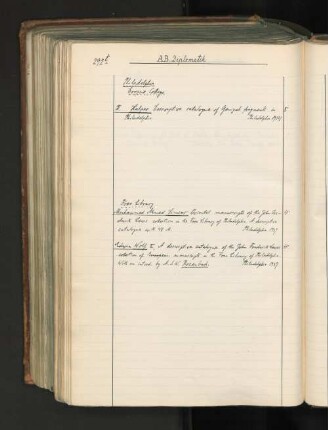 A.B. Diplomatik
Philadelphia
Dropsie College
B. Halper Descriptive catalogue of Genizah fragments in
Philadelphia Philadelphia 1924
Free Library
Muhammed Ahmed Simsar Oriental manuscripts of the John Fre-
derick Lewis collection in the Free Library of Philadelphia. A descriptive
catalogue with 48 Philadelphia 1937
Edwin Wolf A descriptive catalogue of the John Frederick Lewis
collection of European manuscripts in the Free Library of Philadelphia
With an introd. by A.S.W. Rosenbach Philadelphia 1937